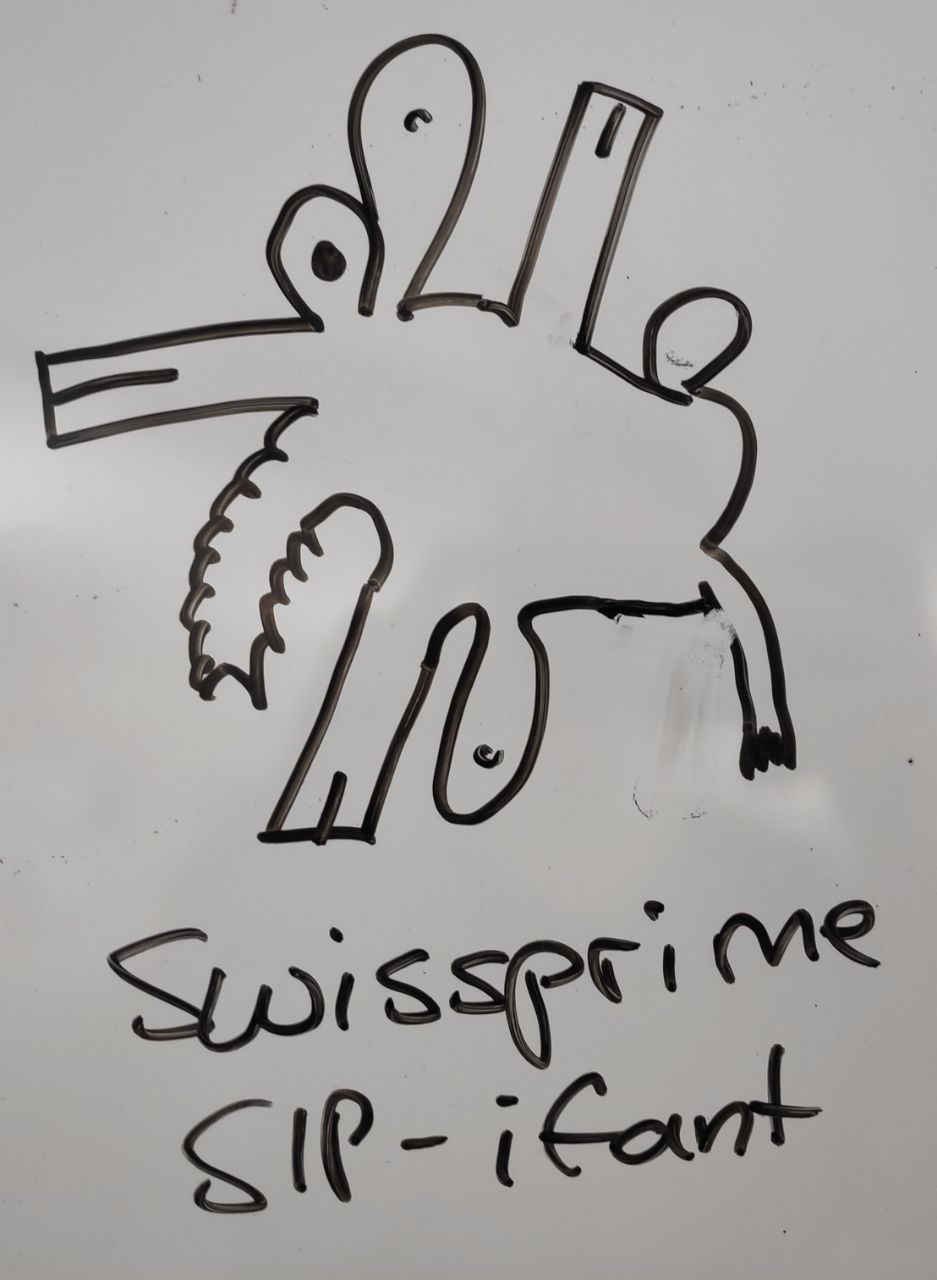 Swissprime
SIP-ifant